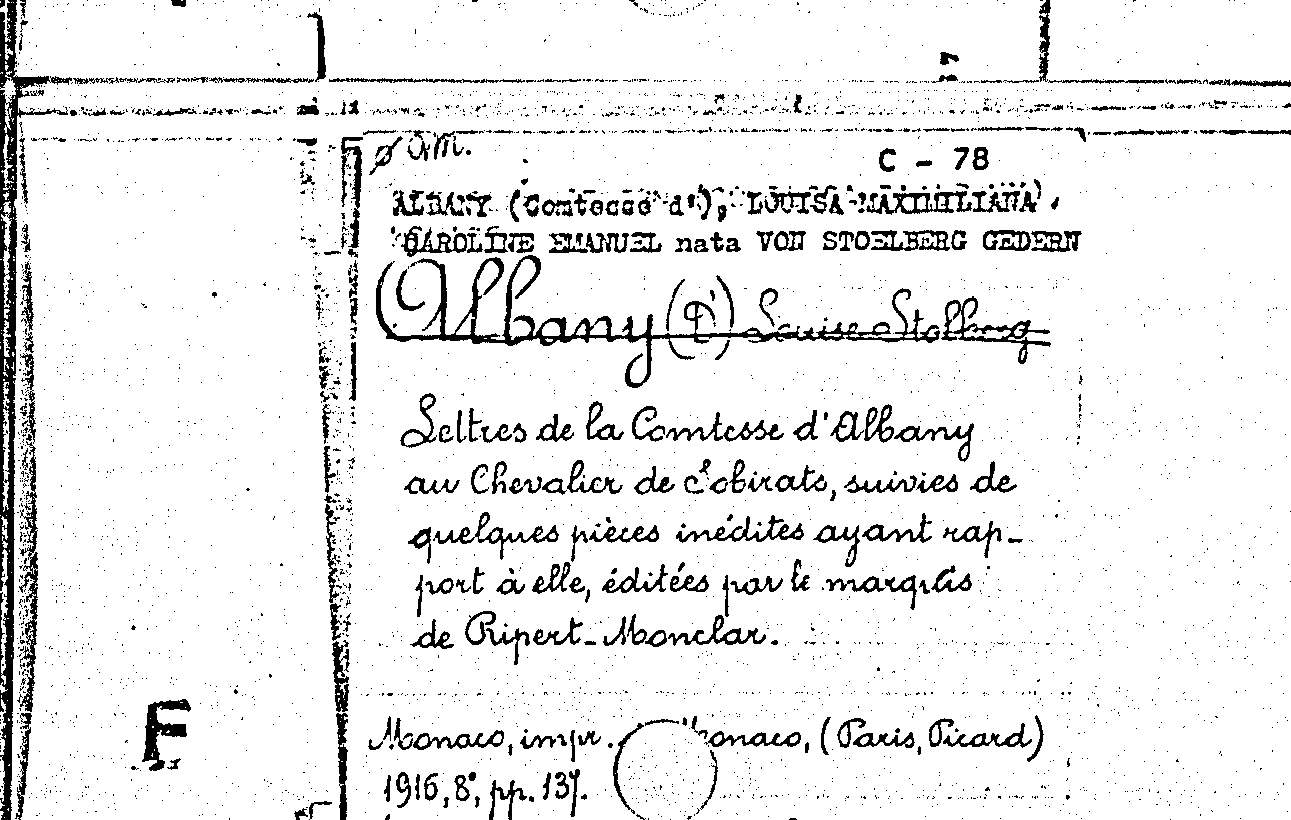 C - 78
ALBANY (Comtesse d'), LOUISA MAXIMILIANA
CAROLINE EMANUEL nata VON STOELBERG GEDERN
Albany (D') Louise Stolberg
Lettres de la Comtesse d'Albany
au Chevalier de Sobirats, suivies de
quelques pièces inédites ayant rap-
port à elle, éditées par le marquis
de Ripert-Monclar.
F
Monaco, impr. Monaco, (Paris, Picard)
1916, 8°, pp. 137.